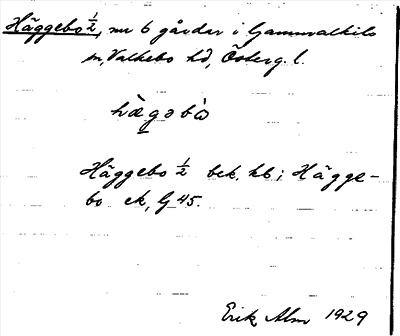 Häggebo ½, nr 6 gårdar i Gammalkils
sn, Valkebo hd, Österg. l.
hægəbò
Häggebo ½ bek. hb; Hägge-
bo ek, G 45.
Erik Alm 1929